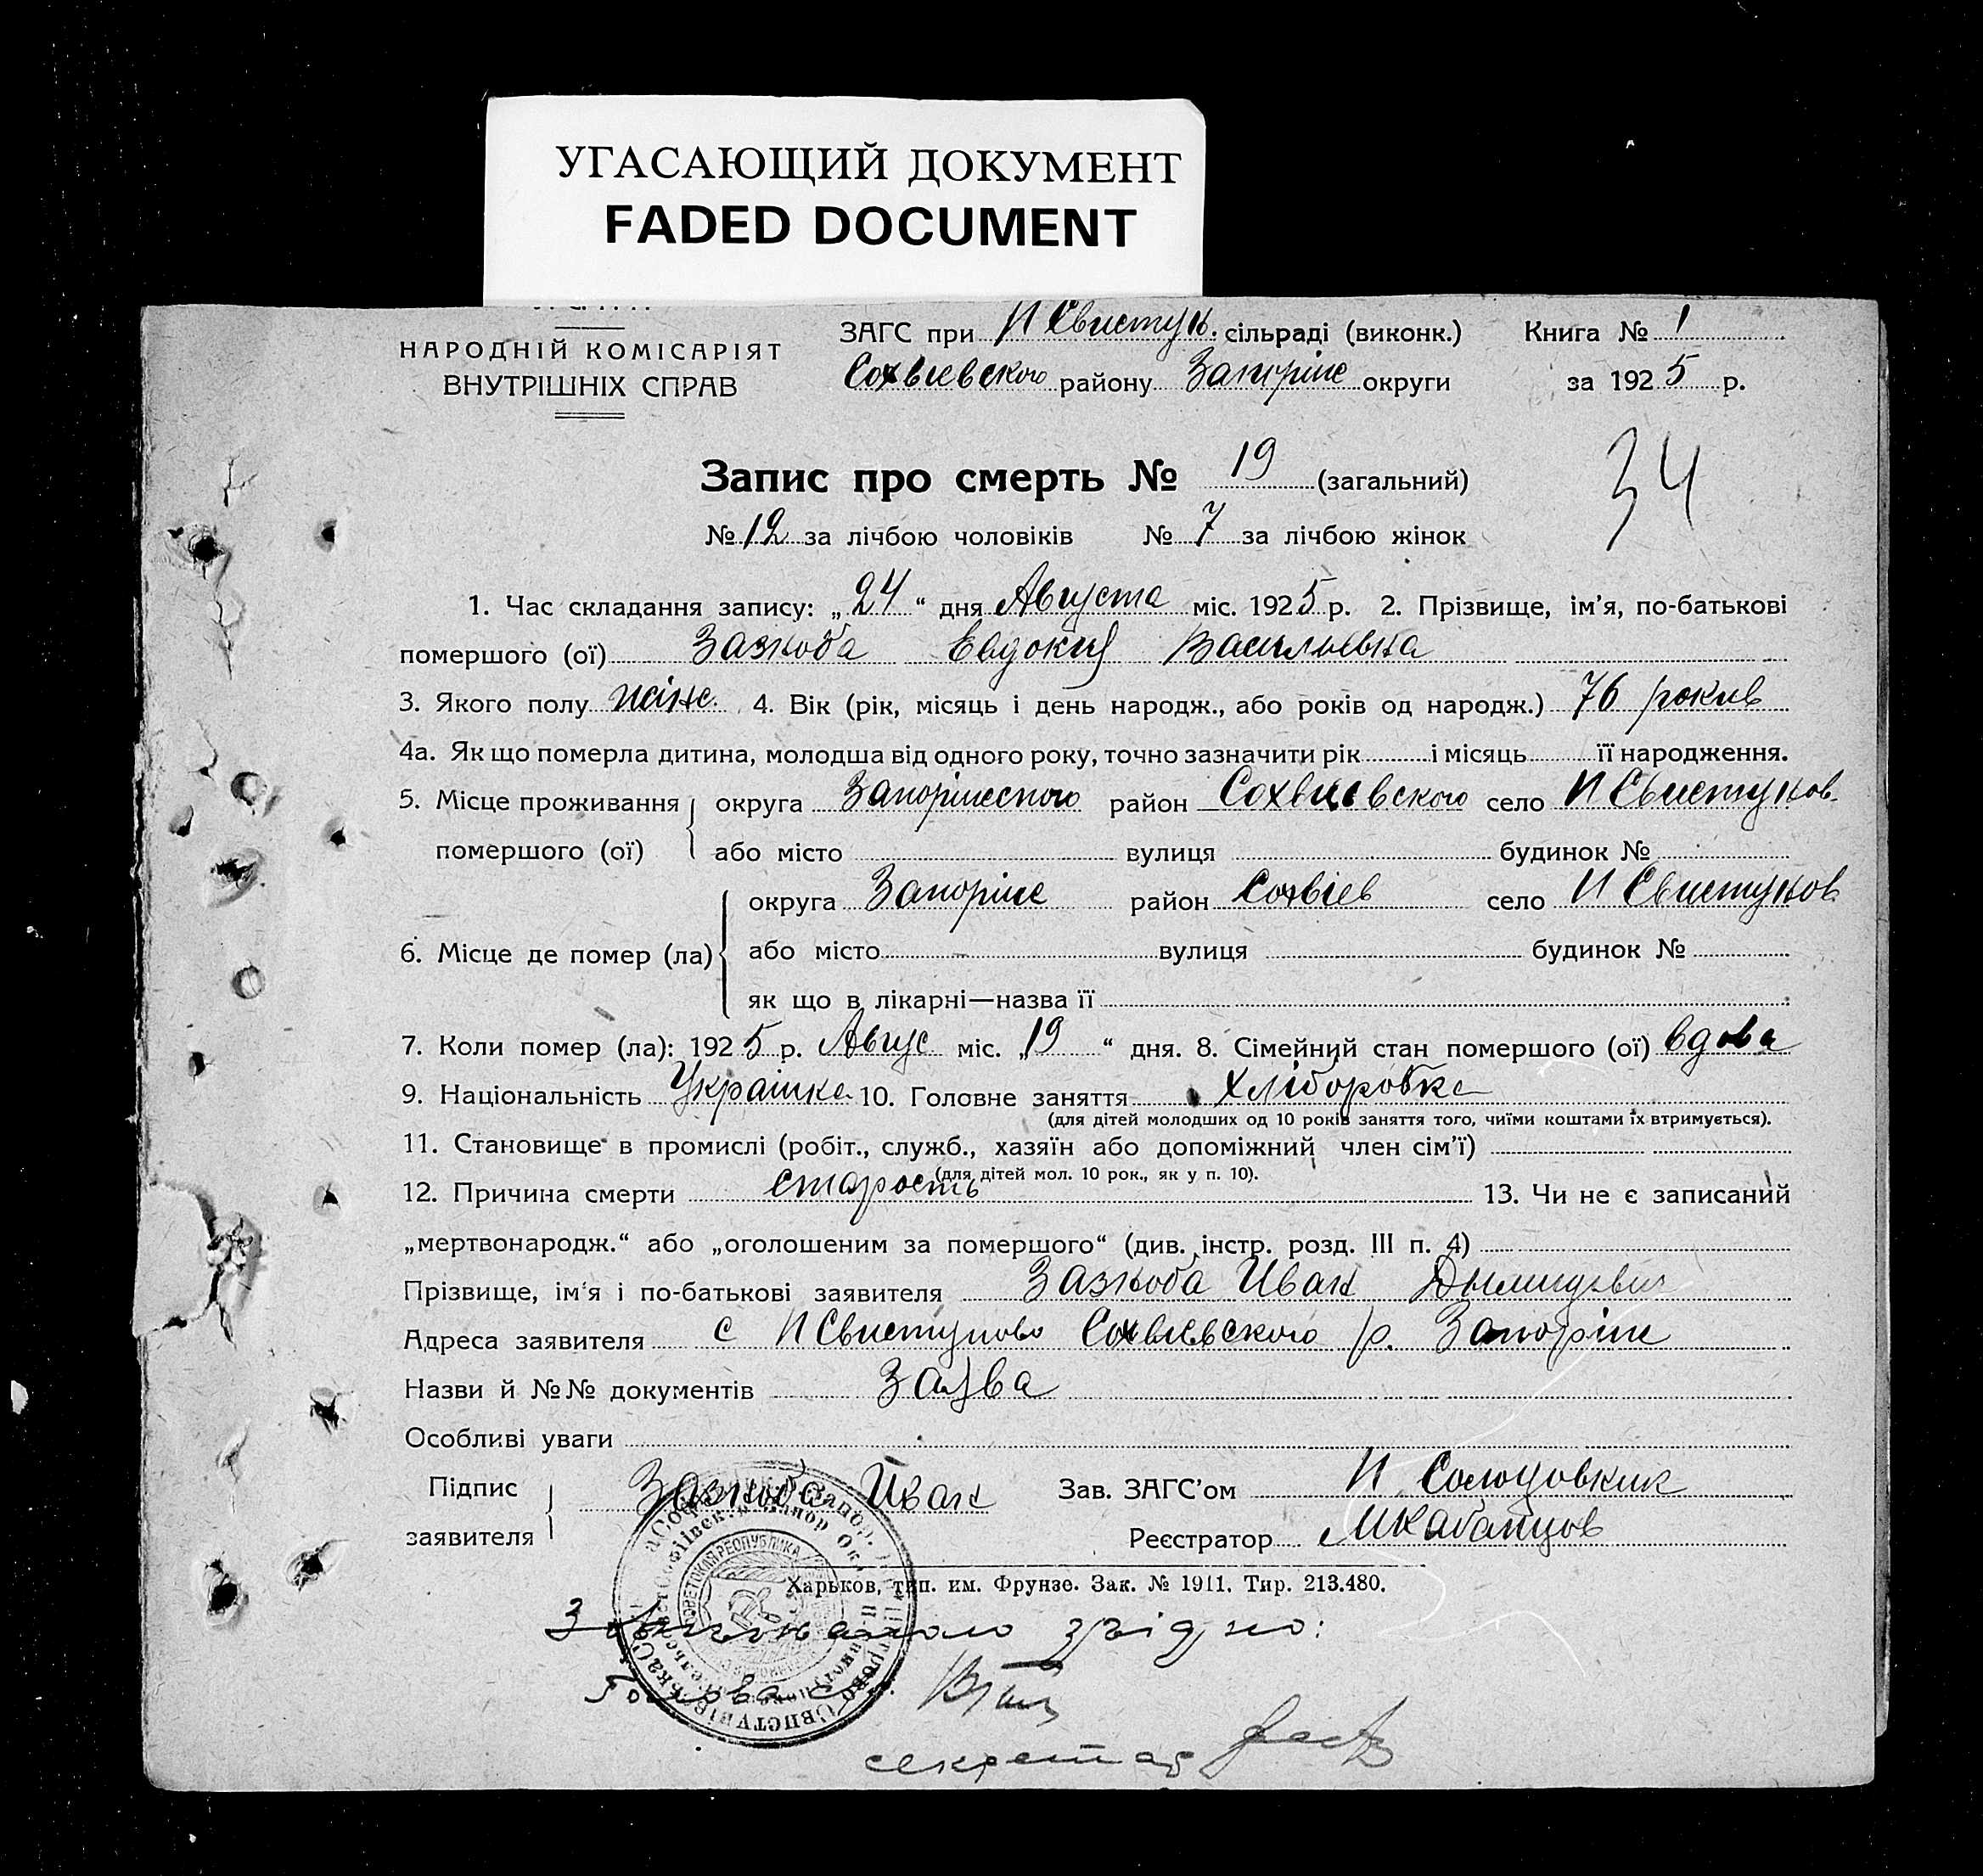 УГАСАЮЩИЙ ДОКУМЕНТ
FADED DOCUMENT
НАРОДНІЙ КОМІСАРІЯТ
ВНУТРІШНІХ СПРАВ
ЗАГС при Н Свистун. сільраді (виконк.) Книга № 1
Сохвиевского району Запоріже округи за 1925 р.
34
Запис про смерть № 19 (загальний)
№ 12 за лічбою чоловіків № 7 за лічбою жінок
1. Час складання запису: „24“ дня Августа міс. 1925 р. 2. Прізвище, ім’я, по-батькові
помершого (ої) Зазноба Евдокия Васильевна
3. Якого полу жінс. 4. Вік (рік, місяць і день народж., або років од народж.) 76 рокив
4а. Як що померла дитина, молодша від одного року, точно зазначити рік і місяць її народження.
5. Місце проживання округа район Сохвиевского село Н Свистунов.
помершого (ої) або місто вулиця будинок №
округа Запоріже район Сохвіев село Н Свистунов
6. Місце де помер (ла) або місто вулиця будинок №
як що в лікарні—назва її
7. Коли помер (ла): 1925 р. Авгус міс. „19“ дня. 8. Сімейний стан помершого (ої) вдова
9. Національність Украінка 10. Головне заняття хліборобка
(для дітей молодших од 10 років заняття того, чиїми коштами їх втримується).
11. Становище в промислі (робіт., служб., хазяїн або допоміжний член сім’ї)
(для дітей мол. 10 рок., як у п. 10).
12. Причина смерти старость 13. Чи не є записаний
„мертвонародж.“ або „оголошеним за помершого“ (див. інстр. розд. III п. 4)
Прізвище, ім’я і по-батькові заявителя Зазноба Иван
Адреса заявителя с Н Свистуново Сохвиевского р. Запоріже
Назви й №№ документів Заява
Особливі уваги
Підпис
заявителя Зазноба Иван Зав. ЗАГС’ом
Реєстратор
Харьков, тип. им. Фрунзе. Зак. № 1911. Тир. 213.480.
згідно:
Голова
секретар